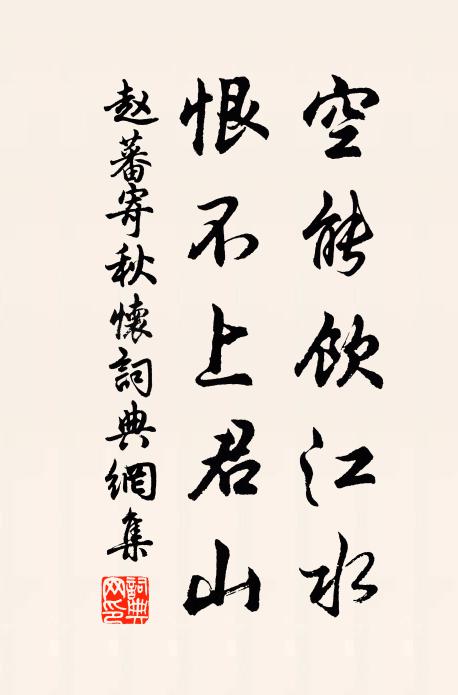 空能饮江水
恨不上君山
赵蕃寄秋懷詞典網集
詞典
网印